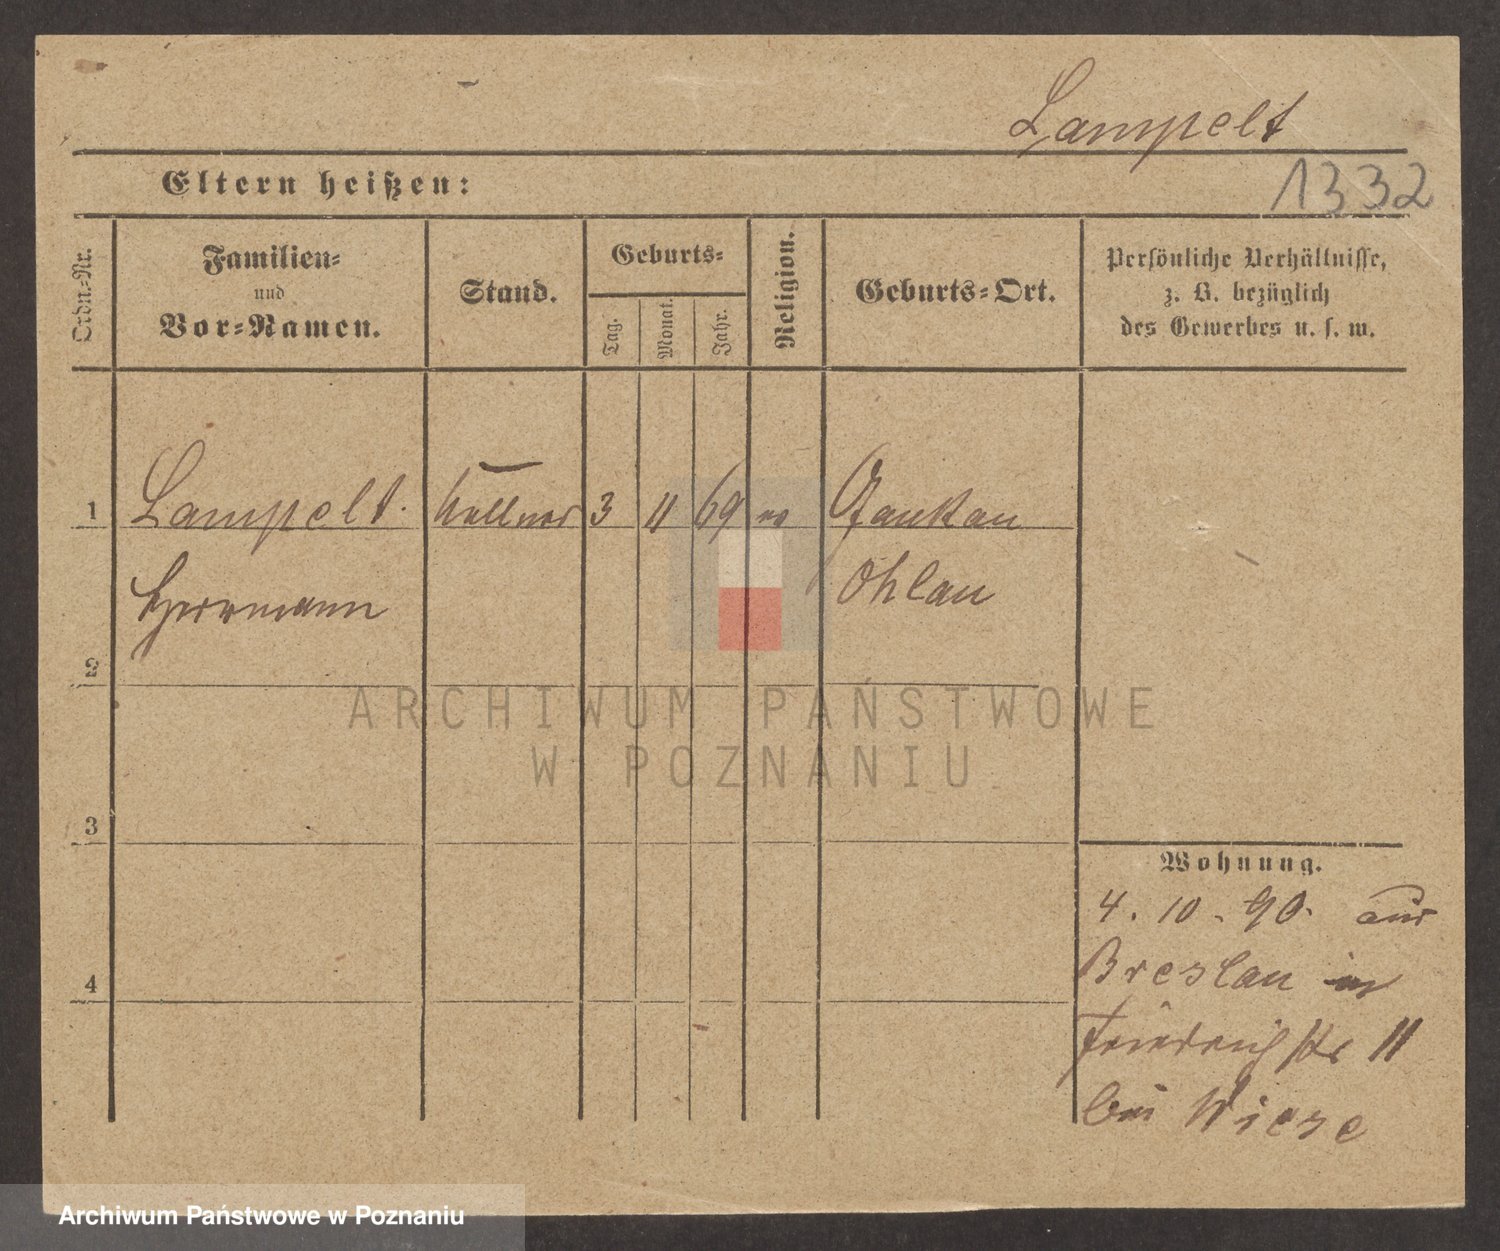 Lampelt
1332
Eltern heißen:
Ordn.-Nr.
Familien-
und
Vor-Namen.
Stand.
Geburts-
Tag.
Monat.
Jahr.
Religion.
Geburts-Ort.
Persönliche Verhältnisse,
z. B. bezüglich
des Gewerbes u. s. w.
1 Lampelt. Kellner 3 11 69 ev Jankau
Herrmann Ohlau
2
3
4
Wohnung.
4. 10. 90. aus
Breslau in
Friedrichstr 11
bei Wiese
ARCHIWUM PAŃSTWOWE
W POZNANIU
Archiwum Państwowe w Poznaniu